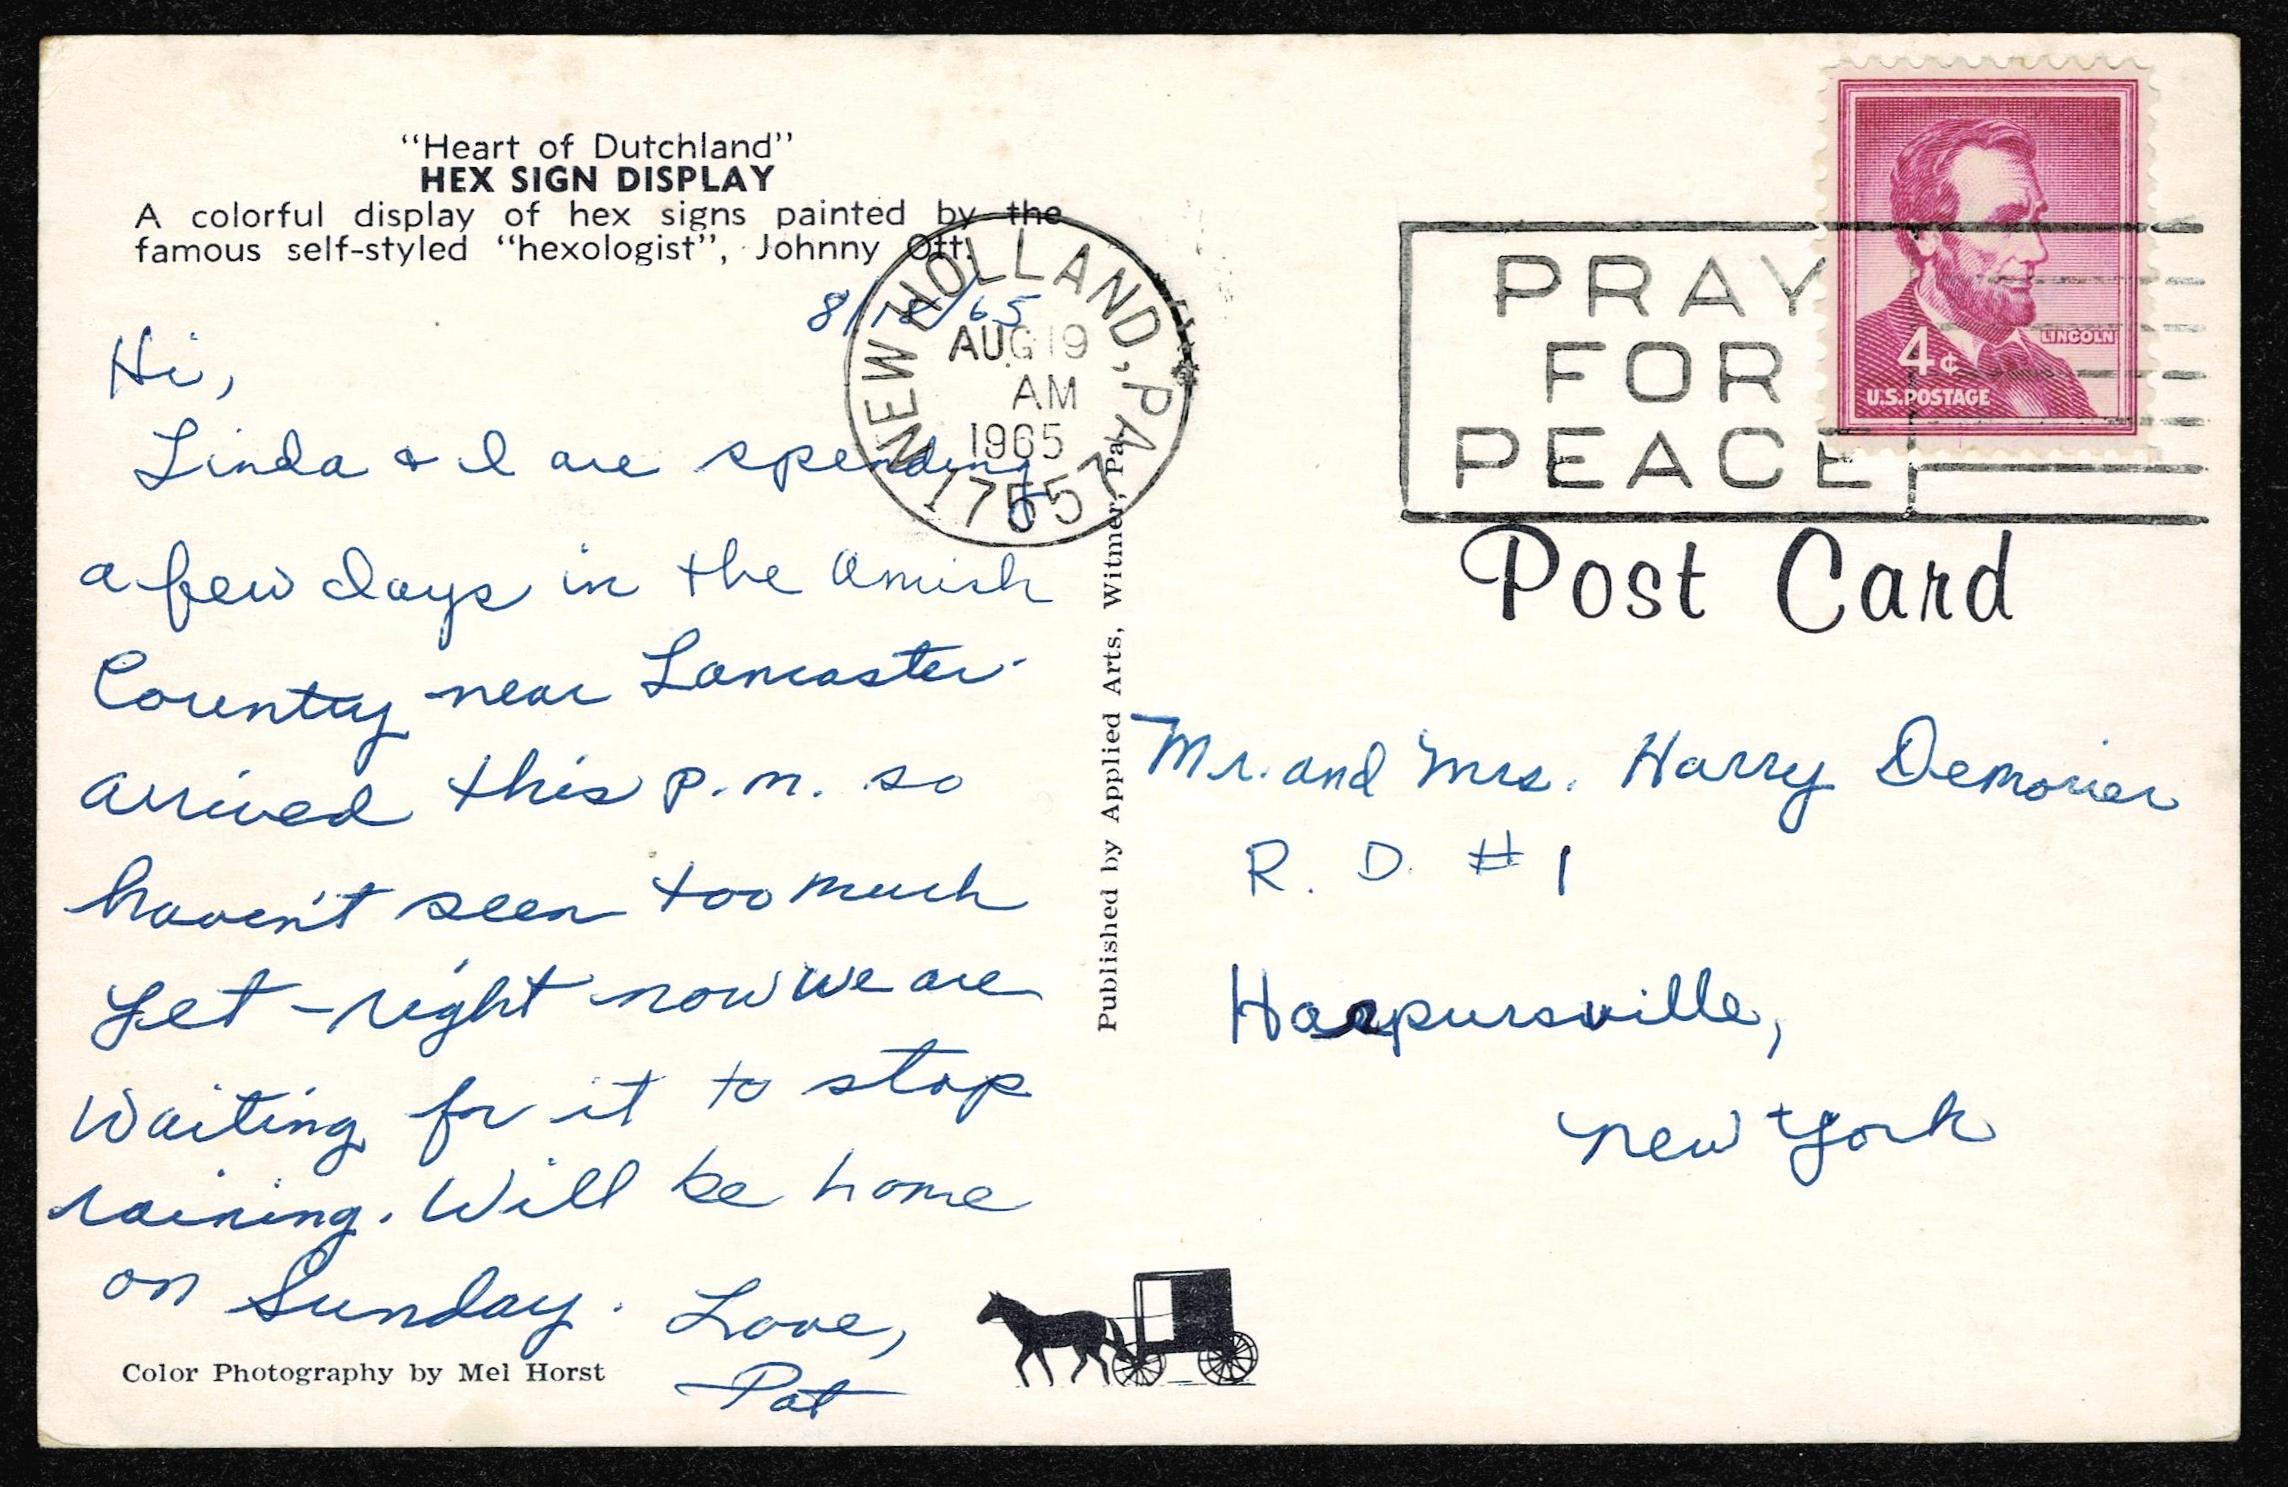 “Heart of Dutchland”
HEX SIGN DISPLAY
A colorful display of hex signs painted by the
famous self-styled “hexologist”, Johnny Ott.
8/18/65
Hi,
Linda & I are spending
a few days in the Amish
Country near Lancaster.
Arrived this p.m. so
haven't seen too much
yet - right now we are
waiting for it to stop
raining. Will be home
on Sunday. Love,
Pat
Color Photography by Mel Horst
Published by Applied Arts, Witmer, Pa.
NEW HOLLAND, PA
AUG 19
AM
1965
17557
PRAY
FOR
PEACE
4¢
LINCOLN
U.S. POSTAGE
Post Card
Mr. and Mrs. Harry Demorier
R. D. #1
Harpursville,
New York